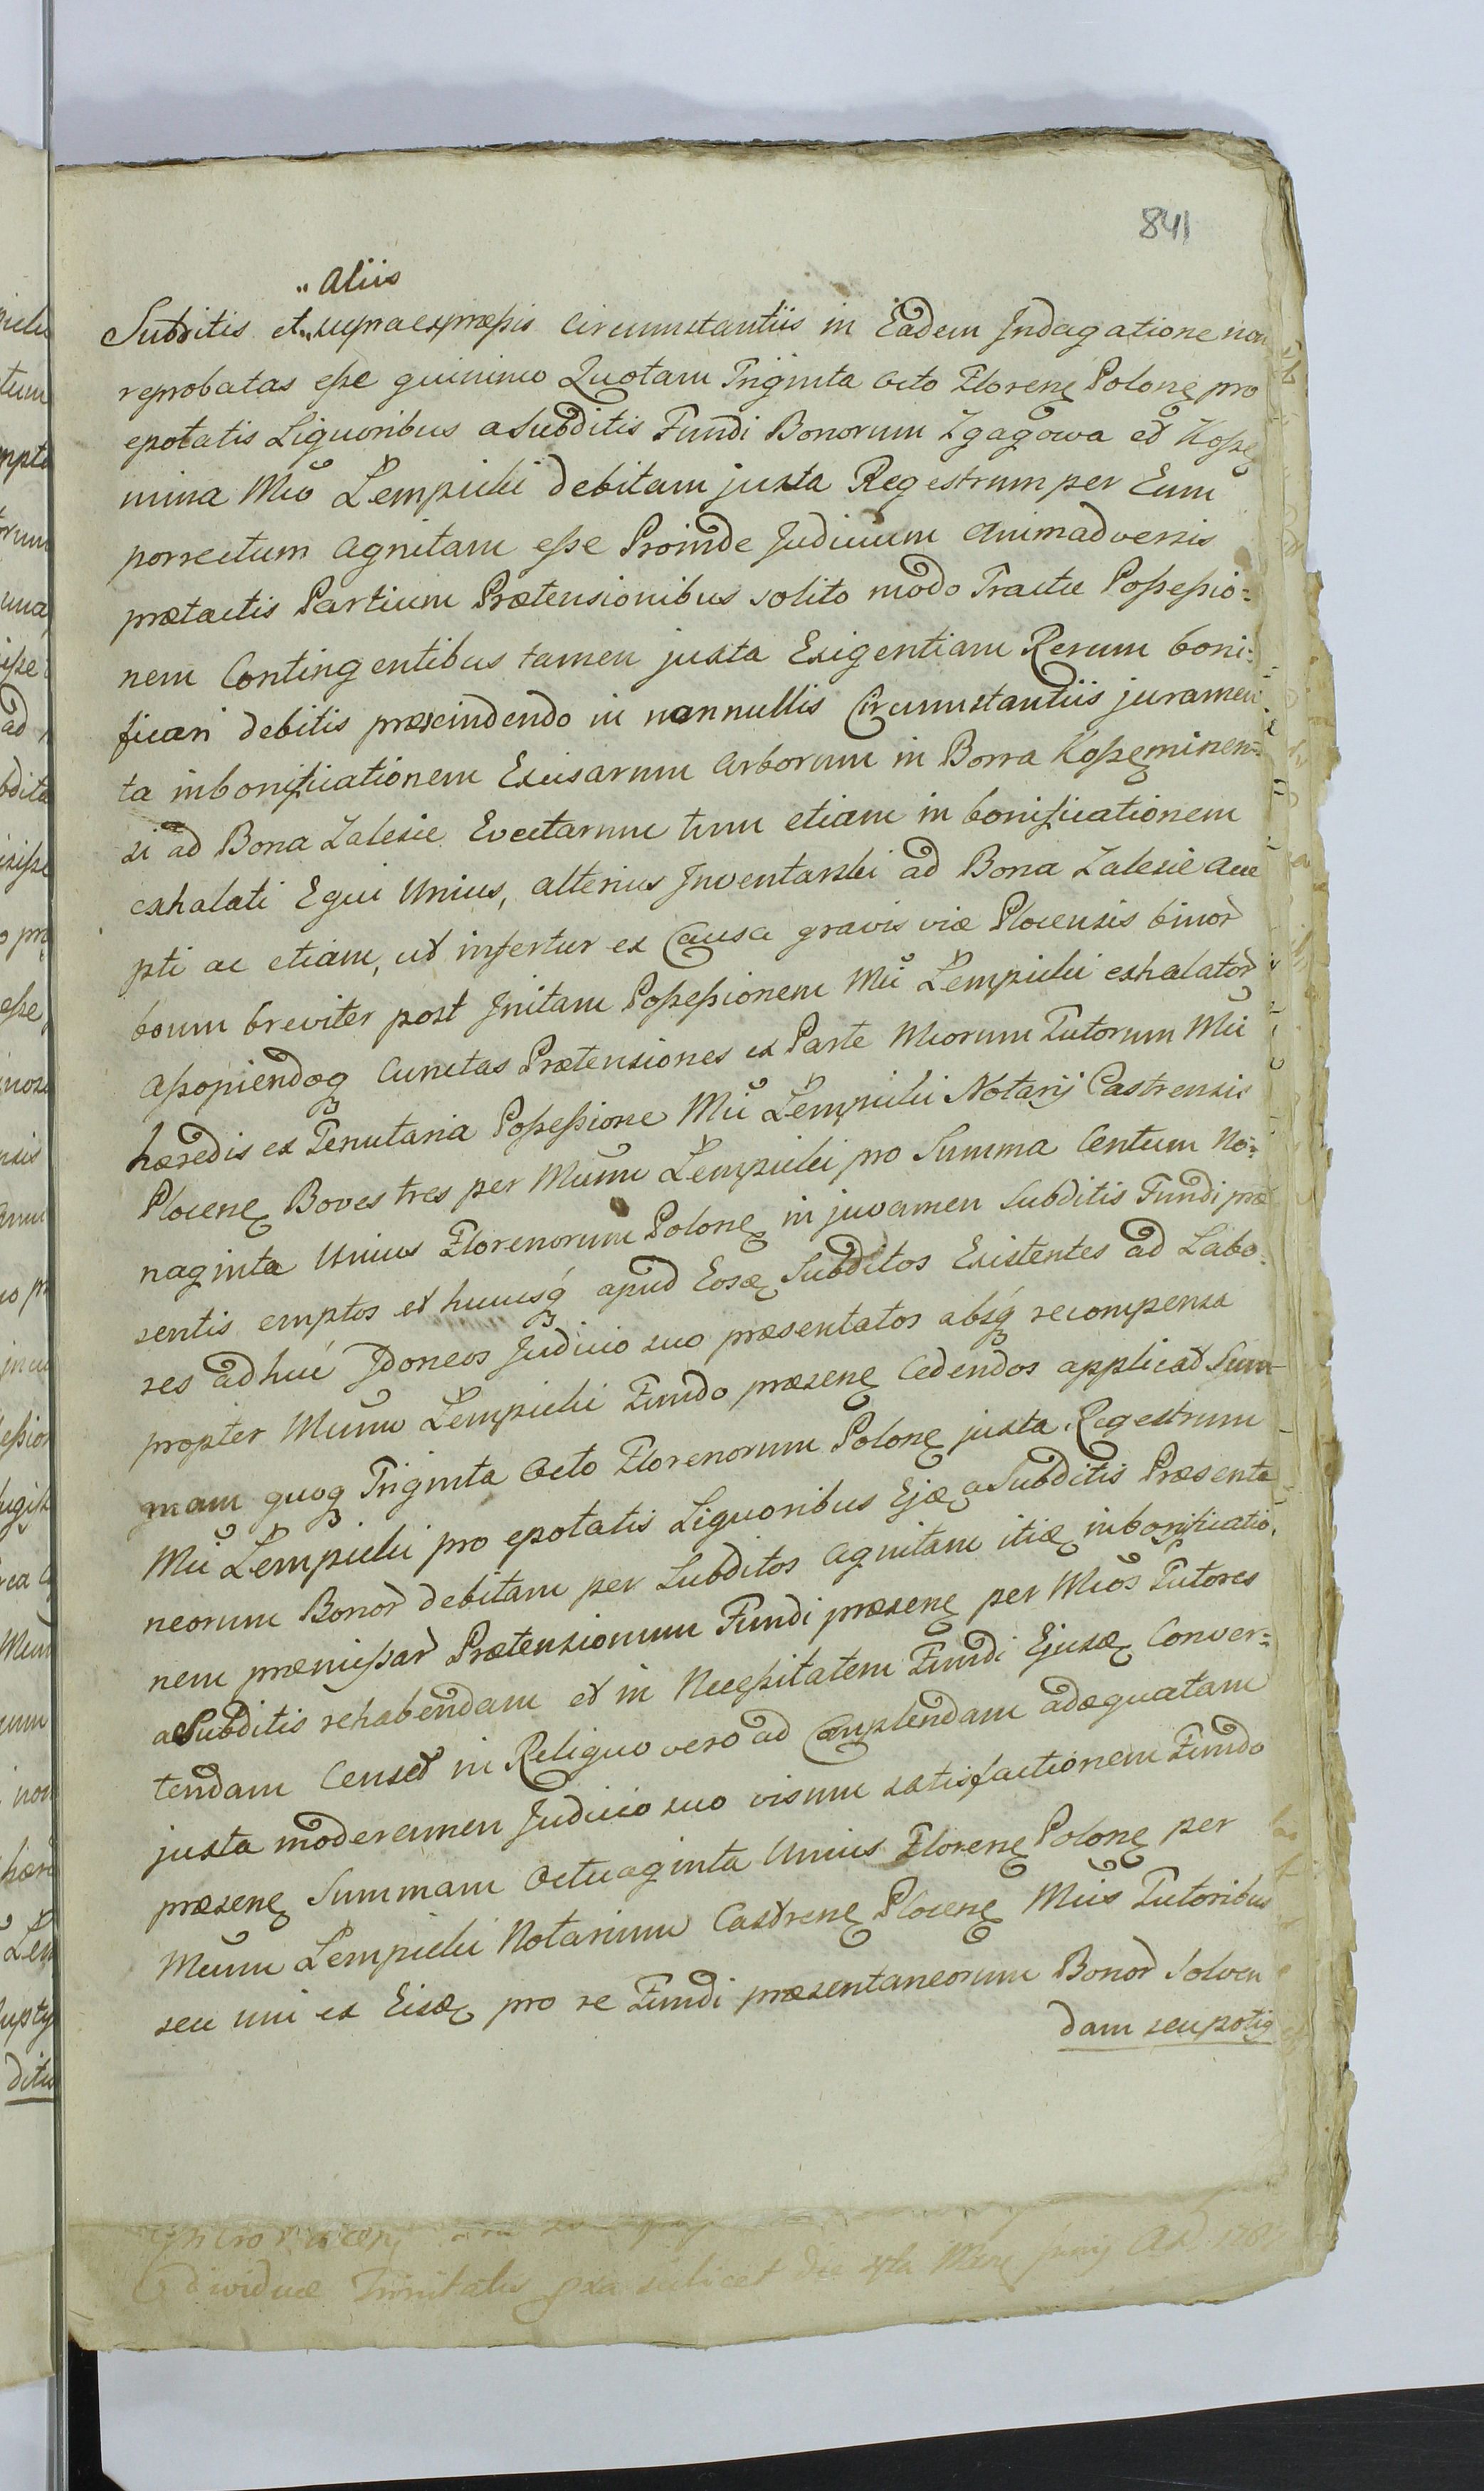 841
" aliis
Subditis et " supraexpræssis circumstantiis in Eadem Indagatione non
reprobatas esse quinimo Quotam Triginta Octo Florenę Polonę pro
epotatis Liquoribus a Subditis Fundi Bonorum Zgagowa et Kosze
mina Mĭo Łempicki debitam juxta Regestrum per Eum
porrectum agnitam esse Proinde Judicium animadversis
prætactis Partium Prætensionibus solito modo Tractu Possessio=
nem Contingentibus tamen juxta Exigentiam Rerum boni=
ficari debitis præscindendo in nonnullis Circumstantiis juramen
ta in bonificationem Excisarum Arborum in Borra Koszęminen=
si ad Bona Zalesie Evectarum tum etiam in bonificationem
exhalati Equi Unius, alterius Inventarski ad Bona Zalesie acce
pti ac etiam, ut infertur ex Causa gravis viæ Plocensis binor
boum breviter post Initam Possessionem Mĭi Łempicki exhalator
assopiendoq cunctas Prætensiones ex Parte Mĭorum Tutorum Mĭi
hæredis ex Tenutaria Possessione Mĭi Łempicki Notarij Castrensis
Plocenę Boves tres per Mĭum Łempicki pro Summa Centum No=
naginta Unius Florenorum Polonę in juvamen Subditis Fundi præ
sentis emptos et hucusq apud Eosdę Subditos Existentes ad Labo=
res adhuc Idoneos Judicio suo præsentatos absq recompensa
propter Mĭum Łempicki Fundo præsenę cedendos applicat Sum
mam quoq Triginta Octo Florenorum Polonę juxta Regestrum
Mĭi Łempicki pro epotatis Liquoribus Ejdę a Subditis Præsenta
neorum Bonor debitam per Subditos agnitam itidę in bonificatio,
nem præmissar Prætensionum Fundi præsenę per Mĭos Tutores
a Subditis rehabendam et in Necessitatem Fundi Ejusdę Conver=
tendam Censet in Reliquo vero ad Complendam adæquatam
juxta moderamen Judicio suo visum satisfactionem Fundo
præsenę Summam Octuaginta Unius Florenę Polonę per
Mĭum Łempicki Notarium Castrenę Plocenę Mĭis Tutoribus
seu uni ex Eisdę pro re Fundi præsentaneorum Bonor Solven
dam seu potiq
dividuæ Trinitatis scilicet die Mensę Junij AD